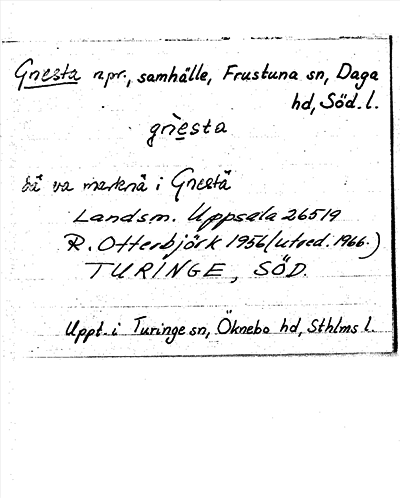 Gnesta npr., samhälle, Frustuna sn, Daga
hd, Söd. l.
gnèsta
dä va marknä i Gnestä
Landsm. Uppsala 26519
R. Otterbjörk 1956 (utred. 1966.)
TURINGE, SÖD.
Uppt. i Turinge sn, Öknebo hd, Sthlms l.